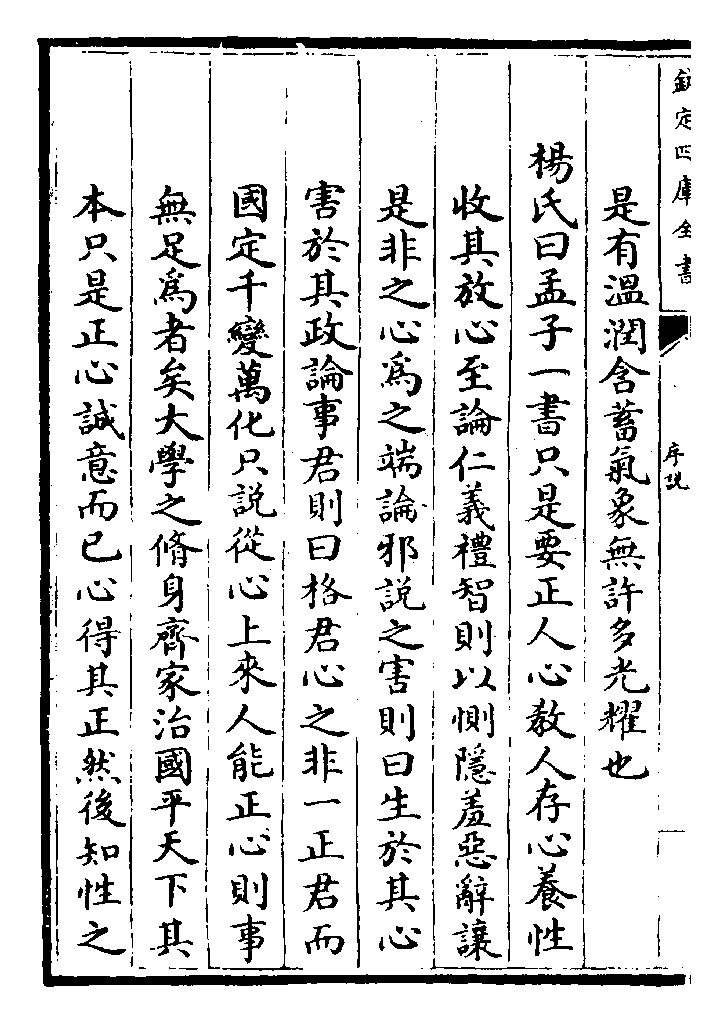 欽定四庫全書
序說
是有溫潤含蓄氣象無許多光耀也
楊氏曰孟子一書只是要正人心教人存心養性
收其放心至論仁義禮智則以惻隱羞惡辭讓
是非之心爲之端論邪說之害則曰生於其心
害於其政論事君則曰格君心之非一正君而
國定千變萬化只說從心上來人能正心則事
無足爲者矣大學之脩身齊家治國平天下其
本只是正心誠意而已心得其正然後知性之